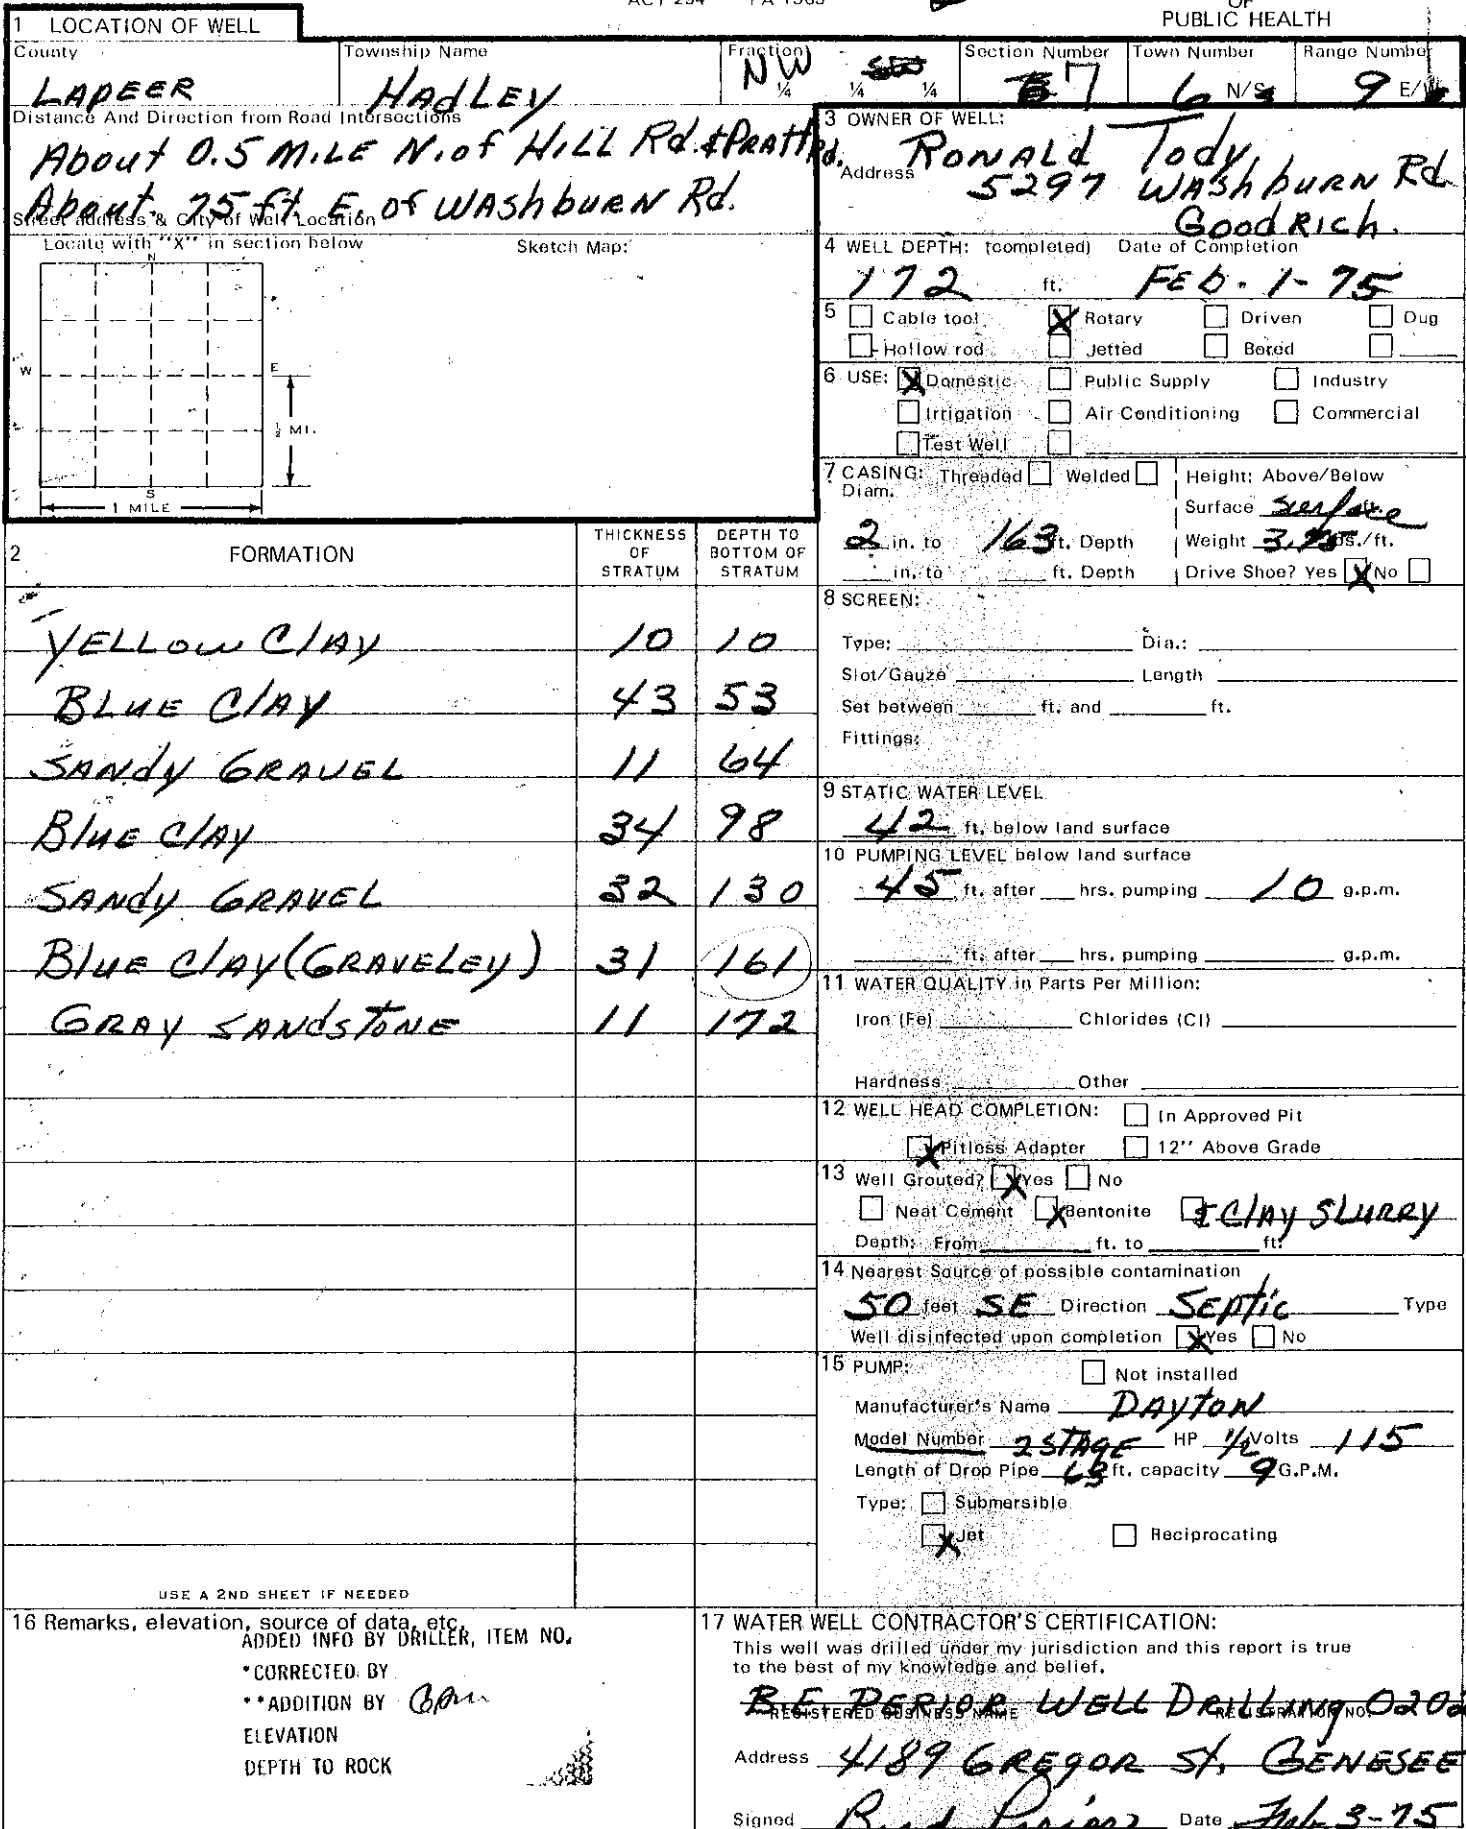 ACT 294 PA 1965
OF
PUBLIC HEALTH
1 LOCATION OF WELL
County
LAPEER
Township Name
HADLEY
Fraction
NW ¼ ¼ ¼
Section Number
7
Town Number
6 N/S
Range Number
9 E/W
Distance And Direction from Road Intersections
About 0.5 MILE N. of HILL Rd. & PRATT Rd.
About 75 ft. E. of WASHBURN Rd.
Street address & City of Well Location
Locate with "X" in section below
Sketch Map:
N
W
E
½ MI.
S
1 MILE
3 OWNER OF WELL:
RONALD Tody
Address
5297 WASHBURN Rd
GOODRICH.
4 WELL DEPTH: (completed) Date of Completion
172 ft. FEB. 1-75
5 Cable tool X Rotary Driven Dug
Hollow rod Jetted Bored
6 USE: X Domestic Public Supply Industry
Irrigation Air Conditioning Commercial
Test Well
7 CASING: Threaded Welded
Diam.
2 in. to 163 ft. Depth
in. to ft. Depth
Height: Above/Below
Surface surface
Weight 3.75 lbs./ft.
Drive Shoe? Yes X No
2 FORMATION
THICKNESS OF STRATUM
DEPTH TO BOTTOM OF STRATUM
YELLOW CLAY 10 10
BLUE CLAY 43 53
SANDY GRAVEL 11 64
BLUE CLAY 34 98
SANDY GRAVEL 32 130
BLUE CLAY (GRAVELEY) 31 161
GRAY SANDSTONE 11 172
USE A 2ND SHEET IF NEEDED
8 SCREEN:
Type: Dia.:
Slot/Gauze Length
Set between ft. and ft.
Fittings:
9 STATIC WATER LEVEL
42 ft. below land surface
10 PUMPING LEVEL below land surface
45 ft. after hrs. pumping 10 g.p.m.
ft. after hrs. pumping g.p.m.
11 WATER QUALITY in Parts Per Million:
Iron (Fe) Chlorides (Cl)
Hardness Other
12 WELL HEAD COMPLETION: In Approved Pit
X Pitless Adapter 12" Above Grade
13 Well Grouted? X Yes No
Neat Cement X Bentonite & CLAY SLURRY
Depth: From ft. to ft.
14 Nearest Source of possible contamination
50 feet SE Direction SEPTIC Type
Well disinfected upon completion X Yes No
15 PUMP: Not installed
Manufacturer's Name DAYTON
Model Number 2 STAGE HP 1/2 Volts 115
Length of Drop Pipe 63 ft. capacity 9 G.P.M.
Type: Submersible
X Jet Reciprocating
16 Remarks, elevation, source of data, etc.
ADDED INFO BY DRILLER, ITEM NO.
*CORRECTED BY
**ADDITION BY
ELEVATION
DEPTH TO ROCK
17 WATER WELL CONTRACTOR'S CERTIFICATION:
This well was drilled under my jurisdiction and this report is true
to the best of my knowledge and belief.
B.E PERIOR WELL DRILLING 0202
REGISTERED BUSINESS NAME REGISTRATION NO.
Address 4189 GREGOR St. GENESEE
Signed Date Feb 3-75